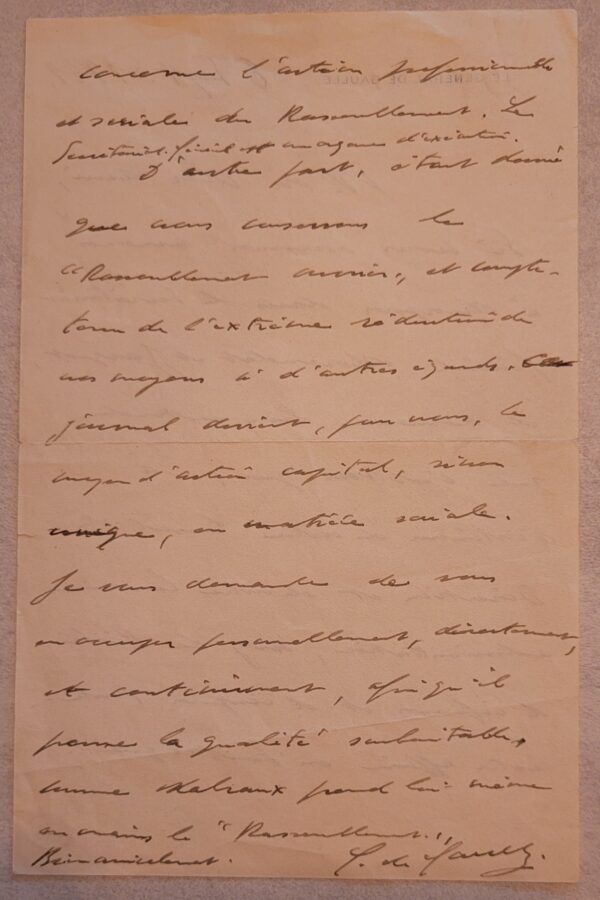 concerne l'action professionnelle
et sociale du Rassemblement. Le
Secrétariat Général est un organe d'exécution.
D'autre part, étant donné
que nous conservons le
"Rassemblement ouvrier", et compte-
tenu de l'extrême réduction de
nos moyens à d'autres égards, ce
journal devient, pour nous, le
moyen d'action capital, sinon
unique, en matière sociale.
Je vous demande de vous
en occuper personnellement, directement,
et continûment, afin qu'il
prenne la qualité souhaitable,
comme Malraux prend lui-même
en mains le "Rassemblement".
Bien amicalement.
C. de Gaulle.
LE GÉNÉRAL DE GAULLE